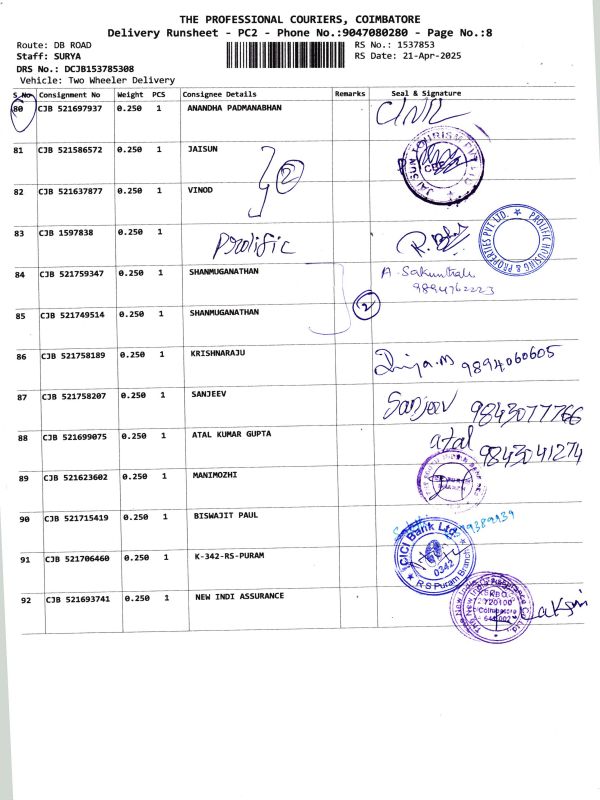 THE PROFESSIONAL COURIERS, COIMBATORE
Delivery Runsheet - PC2 - Phone No.:9047080280 - Page No.:8
Route: DB ROAD RS No.: 1537853
Staff: SURYA RS Date: 21-Apr-2025
DRS No.: DCJB153785308
Vehicle: Two Wheeler Delivery
S.No Consignment No Weight PCS Consignee Details Remarks Seal & Signature
80 CJB 521697937 0.250 1 ANANDHA PADMANABHAN
81 CJB 521586572 0.250 1 JAISUN
JAI SUN TOURISM PVT LTD
2
82 CJB 521637877 0.250 1 VINOD
83 CJB 1597838 0.250 1 Prolific
PROLIFIC HOUSING & PROPERTIES PVT. LTD.
84 CJB 521759347 0.250 1 SHANMUGANATHAN A. Sakunthala
9894762223
2
85 CJB 521749514 0.250 1 SHANMUGANATHAN
86 CJB 521758189 0.250 1 KRISHNARAJU 9894060605
87 CJB 521758207 0.250 1 SANJEEV Sanjeev 9843077766
88 CJB 521699075 0.250 1 ATAL KUMAR GUPTA atal 9843041274
89 CJB 521623602 0.250 1 MANIMOZHI
90 CJB 521715419 0.250 1 BISWAJIT PAUL
91 CJB 521706460 0.250 1 K-342-RS-PURAM
ICICI Bank Ltd.
0342
R S Puram Branch
92 CJB 521693741 0.250 1 NEW INDI ASSURANCE
The New India Assurance Co Ltd
720100
Coimbatore
641002